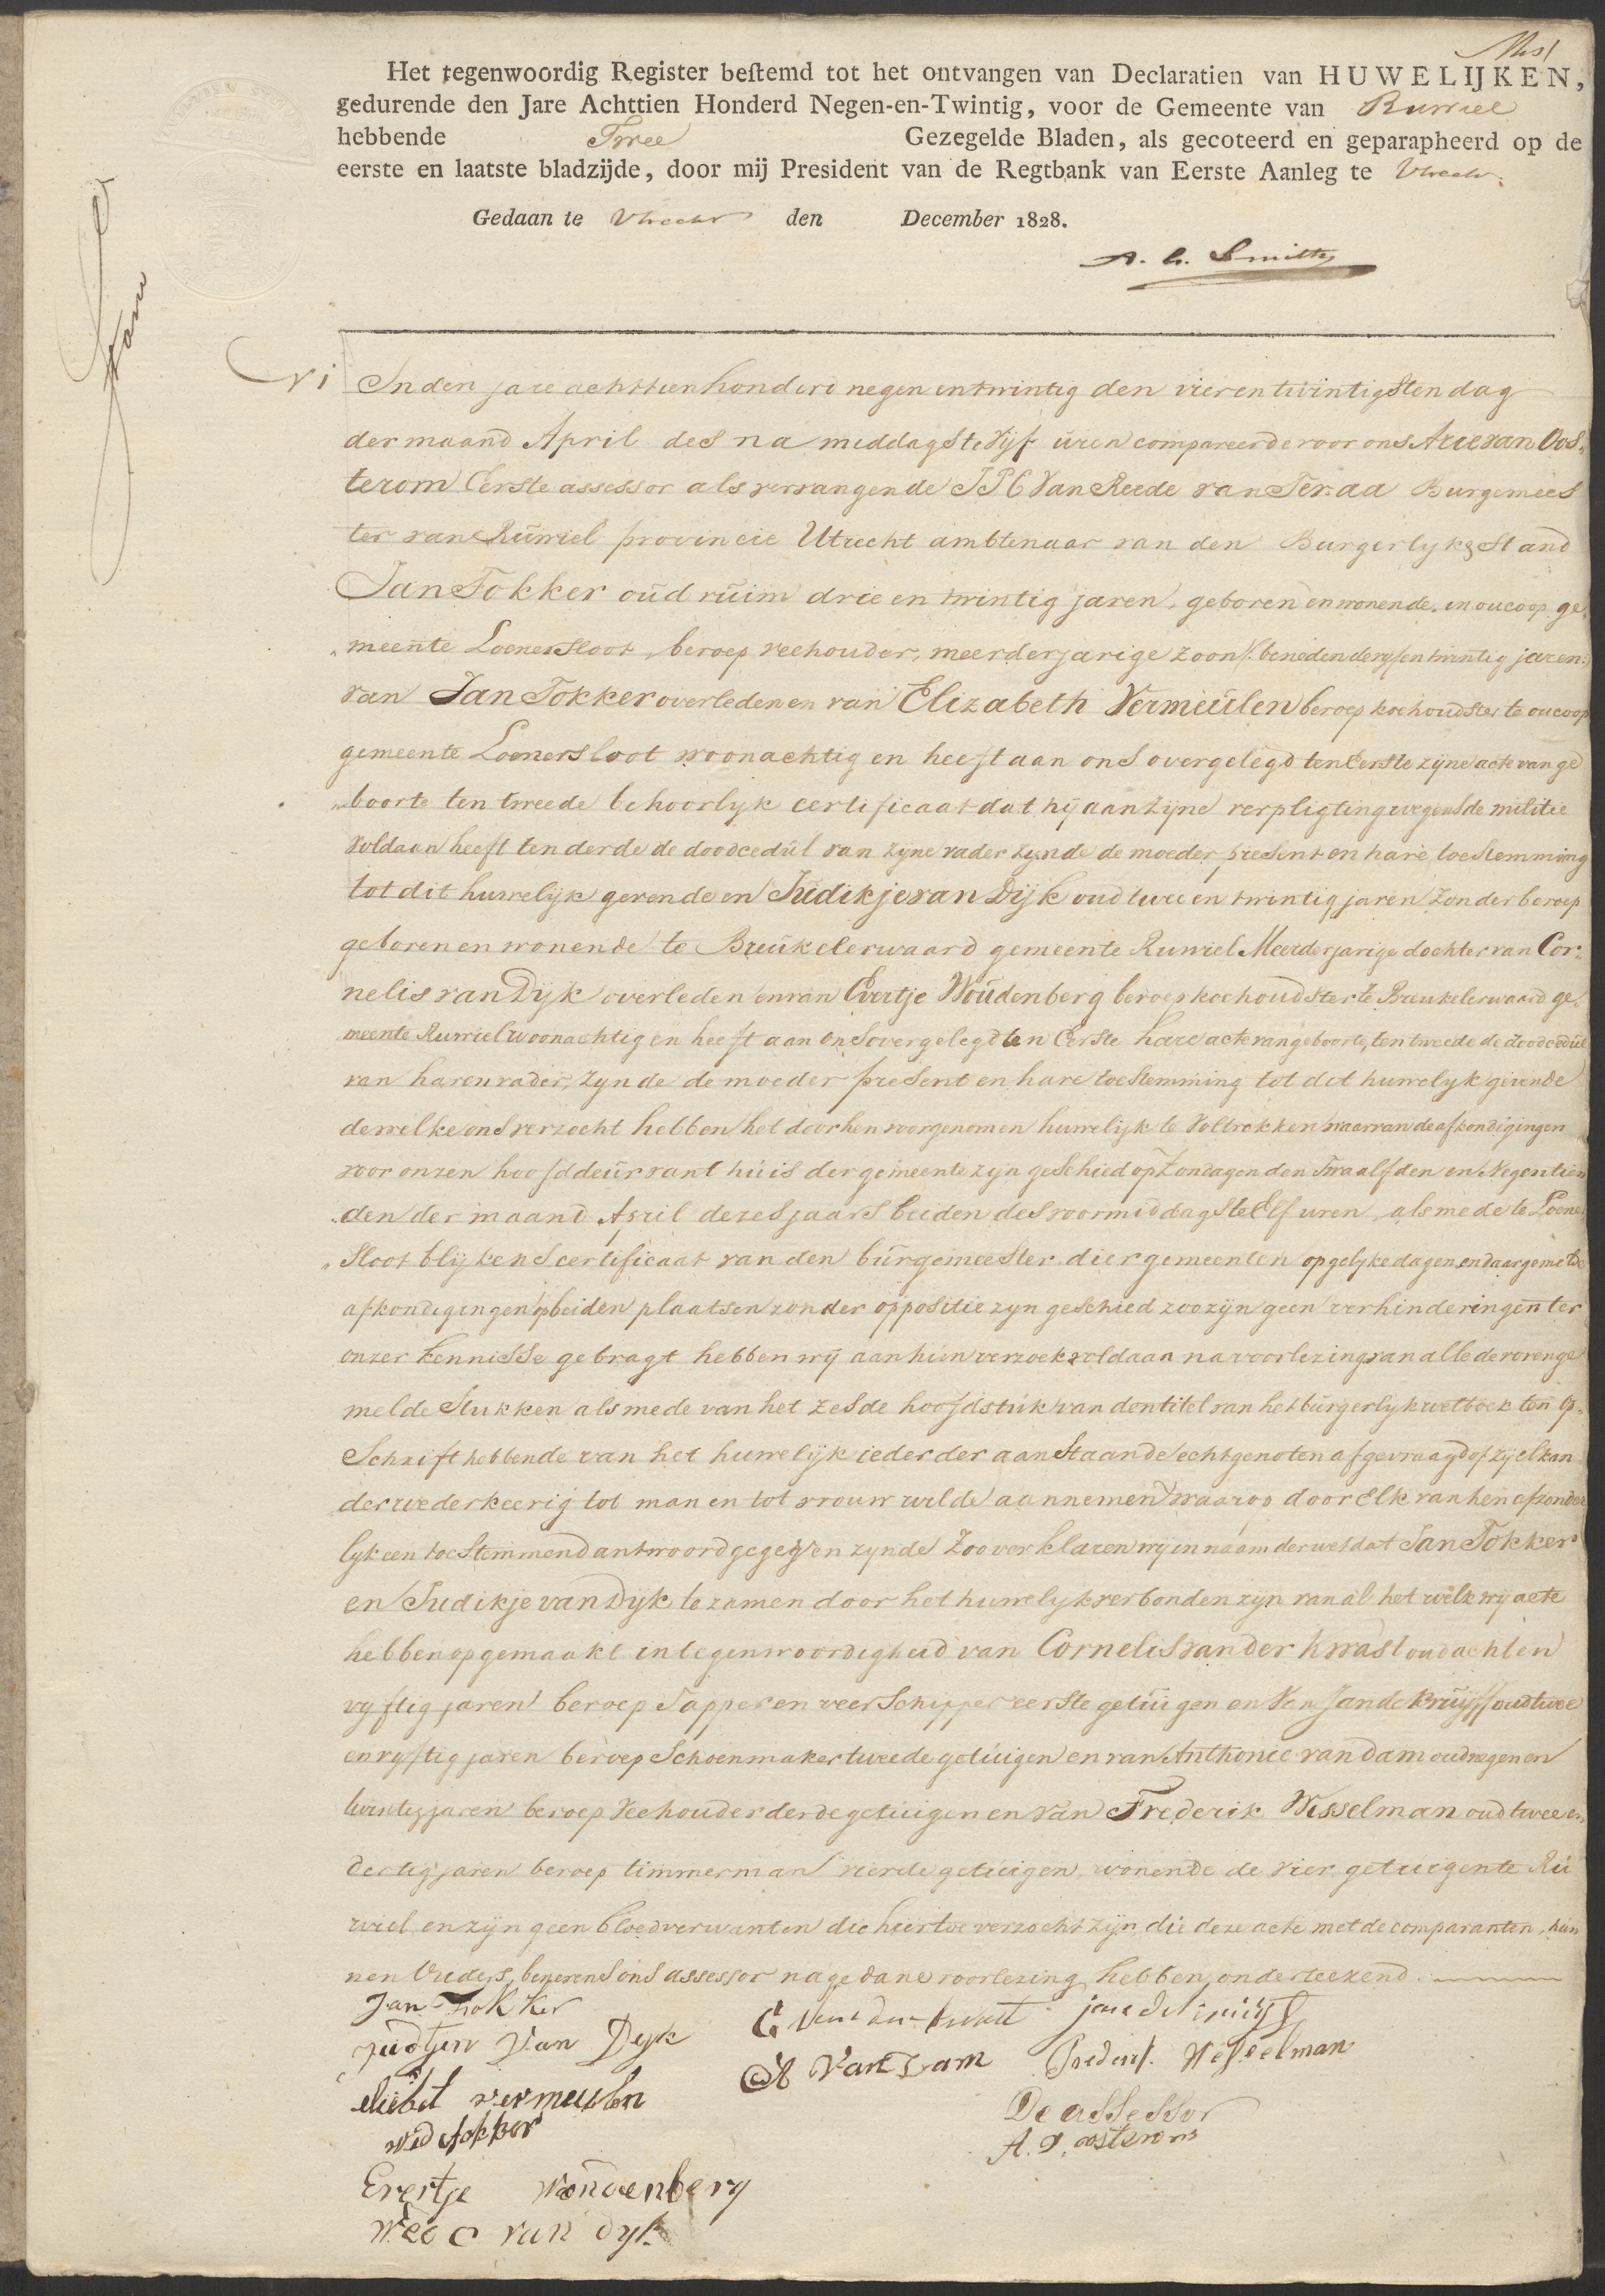 Het tegenwoordig Register bestemd tot het ontvangen van Declaratien van HUWELIJKEN,
gedurende den Jare Achttien Honderd Negen-en-Twintig, voor de Gemeente van Ruwiel
hebbende Twee Gezegelde Bladen, als gecoteerd en geparapheerd op de
eerste en laatste bladzijde, door mij President van de Regtbank van Eerste Aanleg te Utrecht.
Gedaan te Utrecht den December 1828.
N 1
In den jare achttien honderd negen en twintig den vier en twintigsten dag
der maand April des na middags te Vijf uren compareerde voor ons Arie van Oos„
terom Eerste assessor als vervangende J P C Van Reede van Ter aa Burgemees
ter van Ruwiel provincie Utrecht ambtenaar van den Burgerlyke Stand
Jan Fokker oud ruim drie en twintig jaren, geboren en wonende in oucoop ge„
„meente Loenersloot, beroep veehouder, meerderjarige zoon /: beneden de vyf en twintig jaren:/
van Jan Fokker overleden en van Elizabeth Vermeulen beroep koehoudster te oucoop
gemeente Loenersloot woonachtig en heeft aan ons overgelegd ten Eerste zijne acte van ge
„boorte ten tweede behoorlyk certificaat dat hij aan zijne verpligting wegens de militie
voldaan heeft ten derde de doodcedul van zijne vader zynde de moeder present en hare toestemming
tot dit huwelijk gevende en Judikje van Dijk oud twee en twintig jaren zonder beroep
geboren en wonende te Breukelerwaard gemeente Ruwiel Meerderjarige dochter van Cor„
nelis van Dijk overleden en van Evertje Woudenberg beroep koehoudster te Breukelerwaard ge„
meente Ruwiel woonachtig en heeft aan ons overgelegd ten Eerste hare acte van geboorte, ten tweede de doodcedul
van haren vader, zynde de moeder present en hare toestemming tot dit huwelyk gevende
dewelke ons verzocht hebben het door hen voorgenomen huwelijk te Voltrekken waarvan de afkondigingen
voor onzen hoofddeur vant huis der gemeente zijn geschied op Zondagen den Twaalfden en Negentien
„den der maand April dezes jaars beiden des voormiddags te Elf uren, als mede te Loener
„sloot blijkens certificaat van den burgemeester dier gemeenten op gelyke dagen en daar gemelde
afkondigingen op beiden plaatsen zonder oppositie zyn geschied zoo zijn geen verhinderingen ter
onzer kennisse gebragt hebben wij aan hun verzoek voldaan na voorlezing van alle de vorenge
melde Stukken als mede van het zesde hoofdstuk van den titel van het burgerlyk wetboek ten op„
Schrift hebbende van het huwelijk ieder der aanstaande echtgenoten afgevraagd of zij elkan
der wederkeerig tot man en tot vrouw wilde aannemen waarop door Elk van hen afzonder
lyk een toestemmend antwoord gegeven zynde Zoo verklaren wy in naam der wet dat Jan Fokker
en Judikje van Dijk te zamen door het huwelyk verbonden zijn van al het welk wij acte
hebben opgemaakt in tegenwoordigheid van Cornelis van der Kwast oud acht en
vyftig jaren beroep Tapper en veerschipper eerste getuigen en Van Jan de Kruijff oud twee
en vyftig jaren beroep Schoenmaker tweede getuigen en van Anthonie van dam oud negen en
twintig jaren beroep Veehouder derde getuigen en van Frederik Wesselman oud twee en
dertig jaren beroep timmerman vierde getuigen, wonende de vier getuigen te Ru
wiel en zijn geen bloedverwanten die hiertoe verzocht zijn, die deze acte met de comparanten, hun
nen Vreders, benevens ons assessor na gedane voorlezing hebben onderteekend.
Jan Fokker
Judtjen Van Dyk
eliebet vermeulen
wed fokker
Evertje Woudenberg
Wed C van dyk
C van der kwast
jan de kruijff
A Van Dam
Frederik Wesselman
De assessor
A. V. oosterom